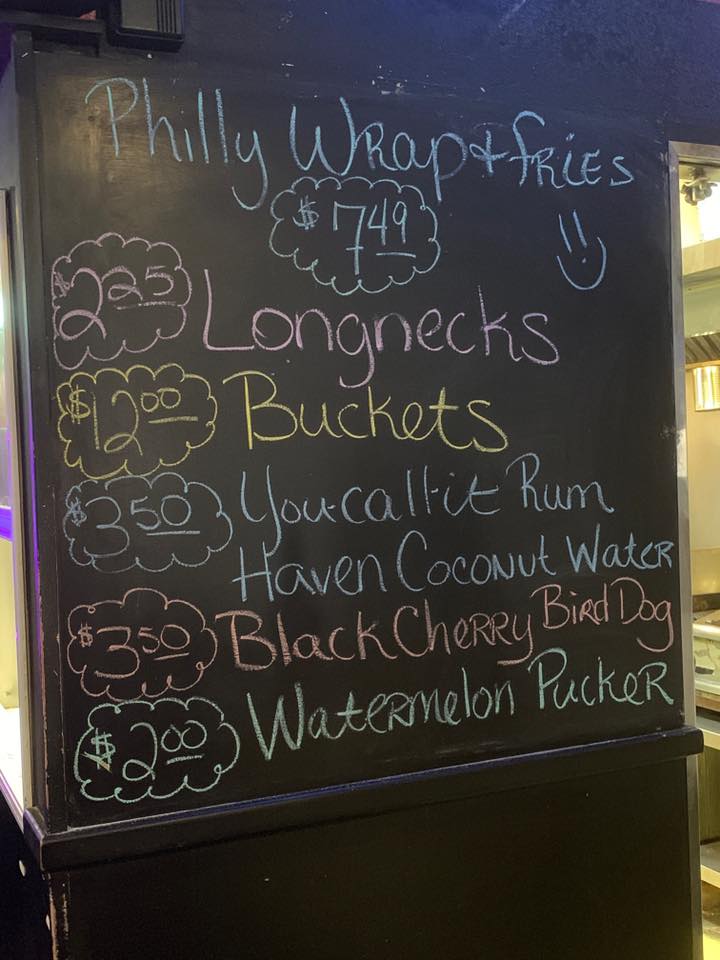 Philly Wrap + fries
$7.49
$2.25 Longnecks
$12.00 Buckets
$3.50 You-call-it Rum
Haven Coconut Water
$3.50 Black Cherry Bird Dog
$2.00 Watermelon Pucker